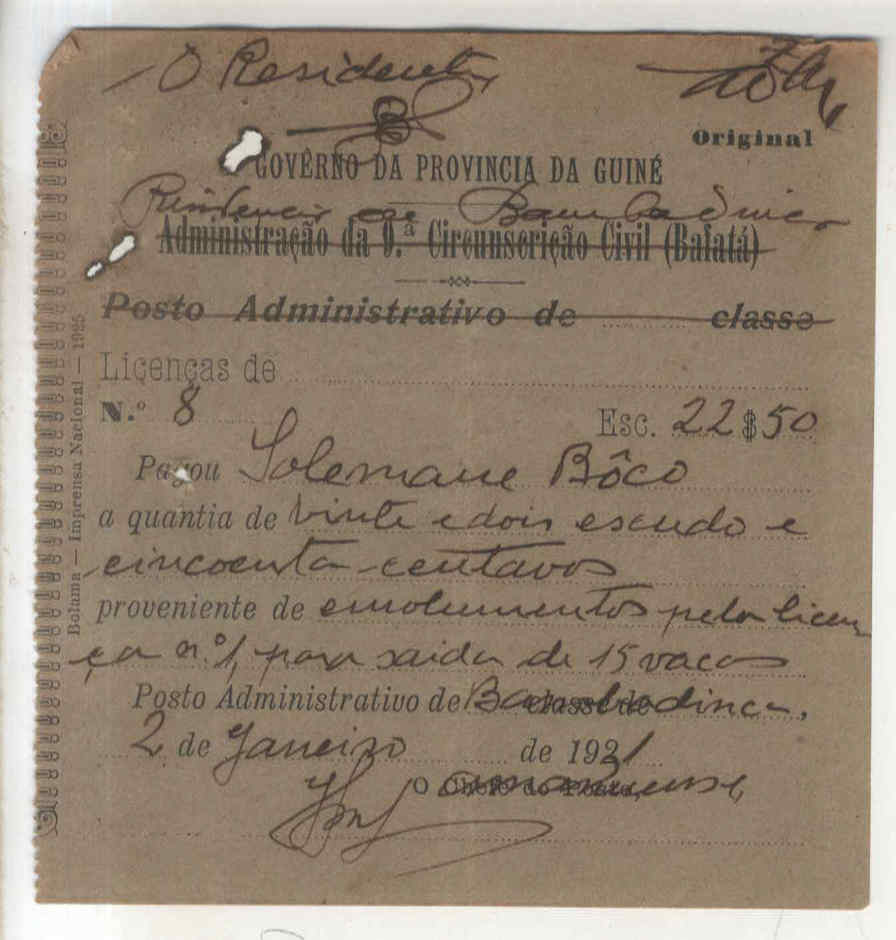 O Residente
Original
GOVÊRNO DA PROVINCIA DA GUINÉ
Residencia de Bambadinca
Administração da 9.ª Circunscrição Civil (Bafatá)
Posto Administrativo de ........ classe
Licenças de
N.º 8 Esc. 22$50
Pagou Solemane Bôco
a quantia de vinte e dois escudo e
cincoenta centavos
proveniente de emolumentos pela licen
ça n.º 1, para saida de 15 vacas
Posto Administrativo de Bambadinca,
2 de Janeiro de 1931
O Chefe do Posto,
amanuense,
Bolama — Imprensa Nacional — 1925